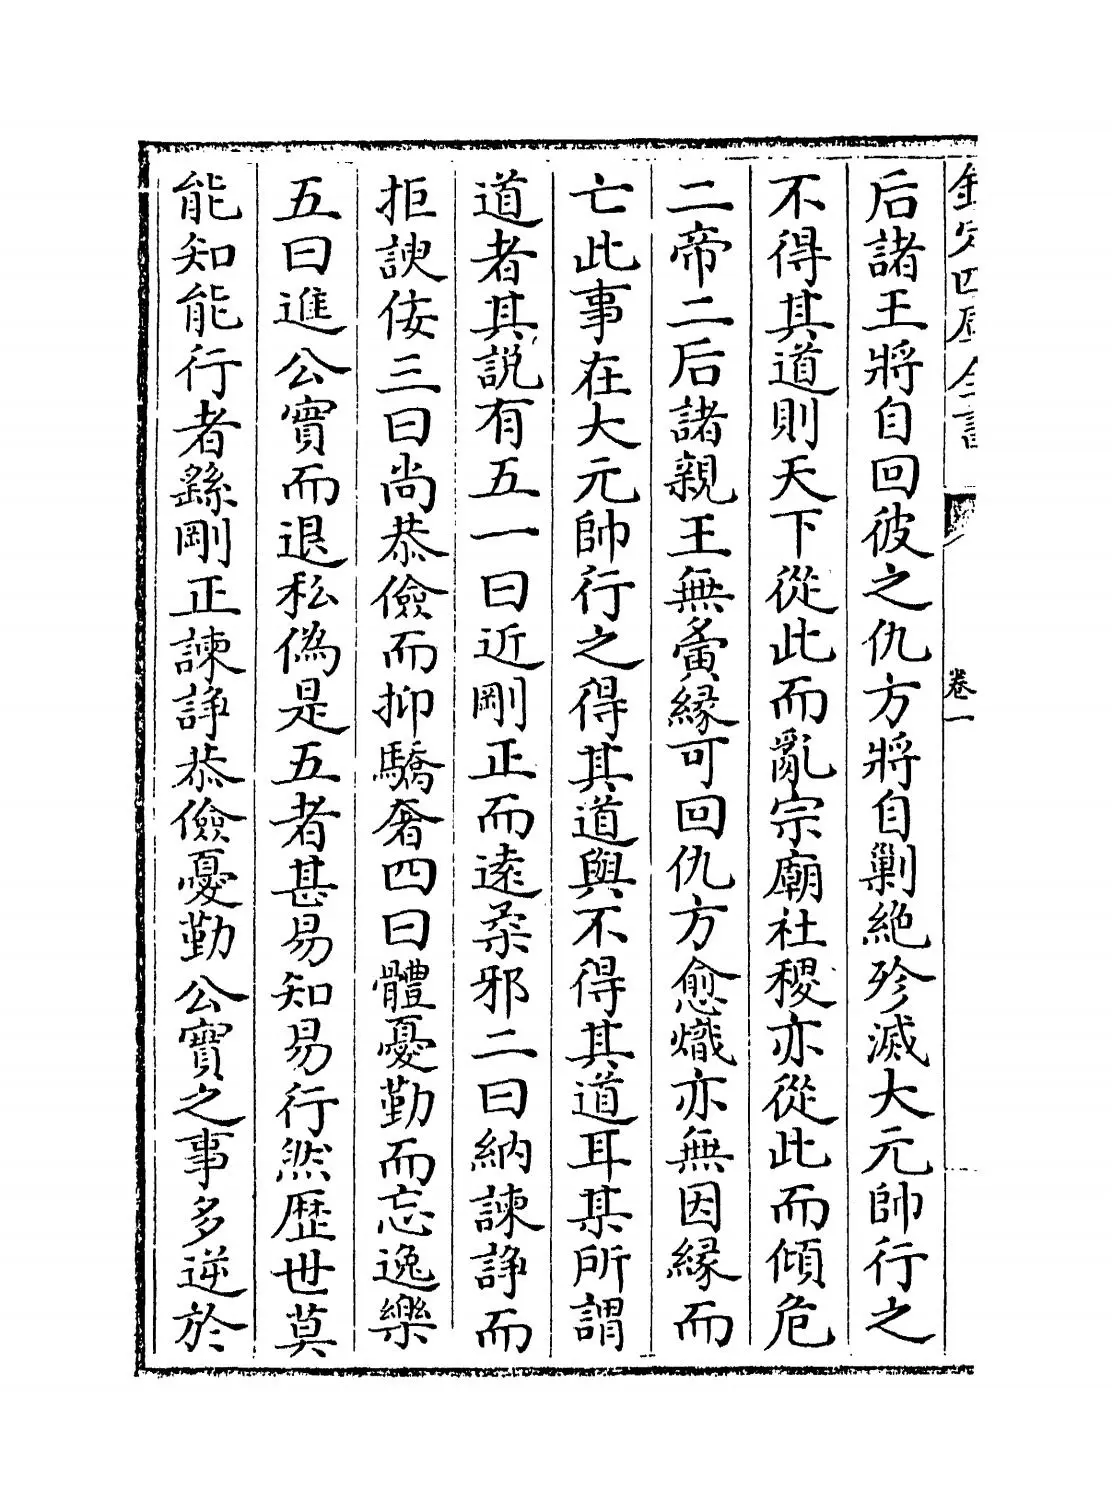 欽定四庫全書
卷一
后諸王將自回彼之仇方將自剿絶殄滅大元帥行之
不得其道則天下從此而亂宗廟社稷亦從此而傾危
二帝二后諸親王無夤縁可回仇方愈熾亦無因縁而
亡此事在大元帥行之得其道與不得其道耳某所謂
道者其説有五一曰近剛正而逺柔邪二曰納諫諍而
拒諛佞三曰尚恭儉而抑驕奢四曰體憂勤而忘逸樂
五曰進公實而退私偽是五者甚易知易行然歴世莫
能知能行者繇剛正諫諍恭儉憂勤公實之事多逆於